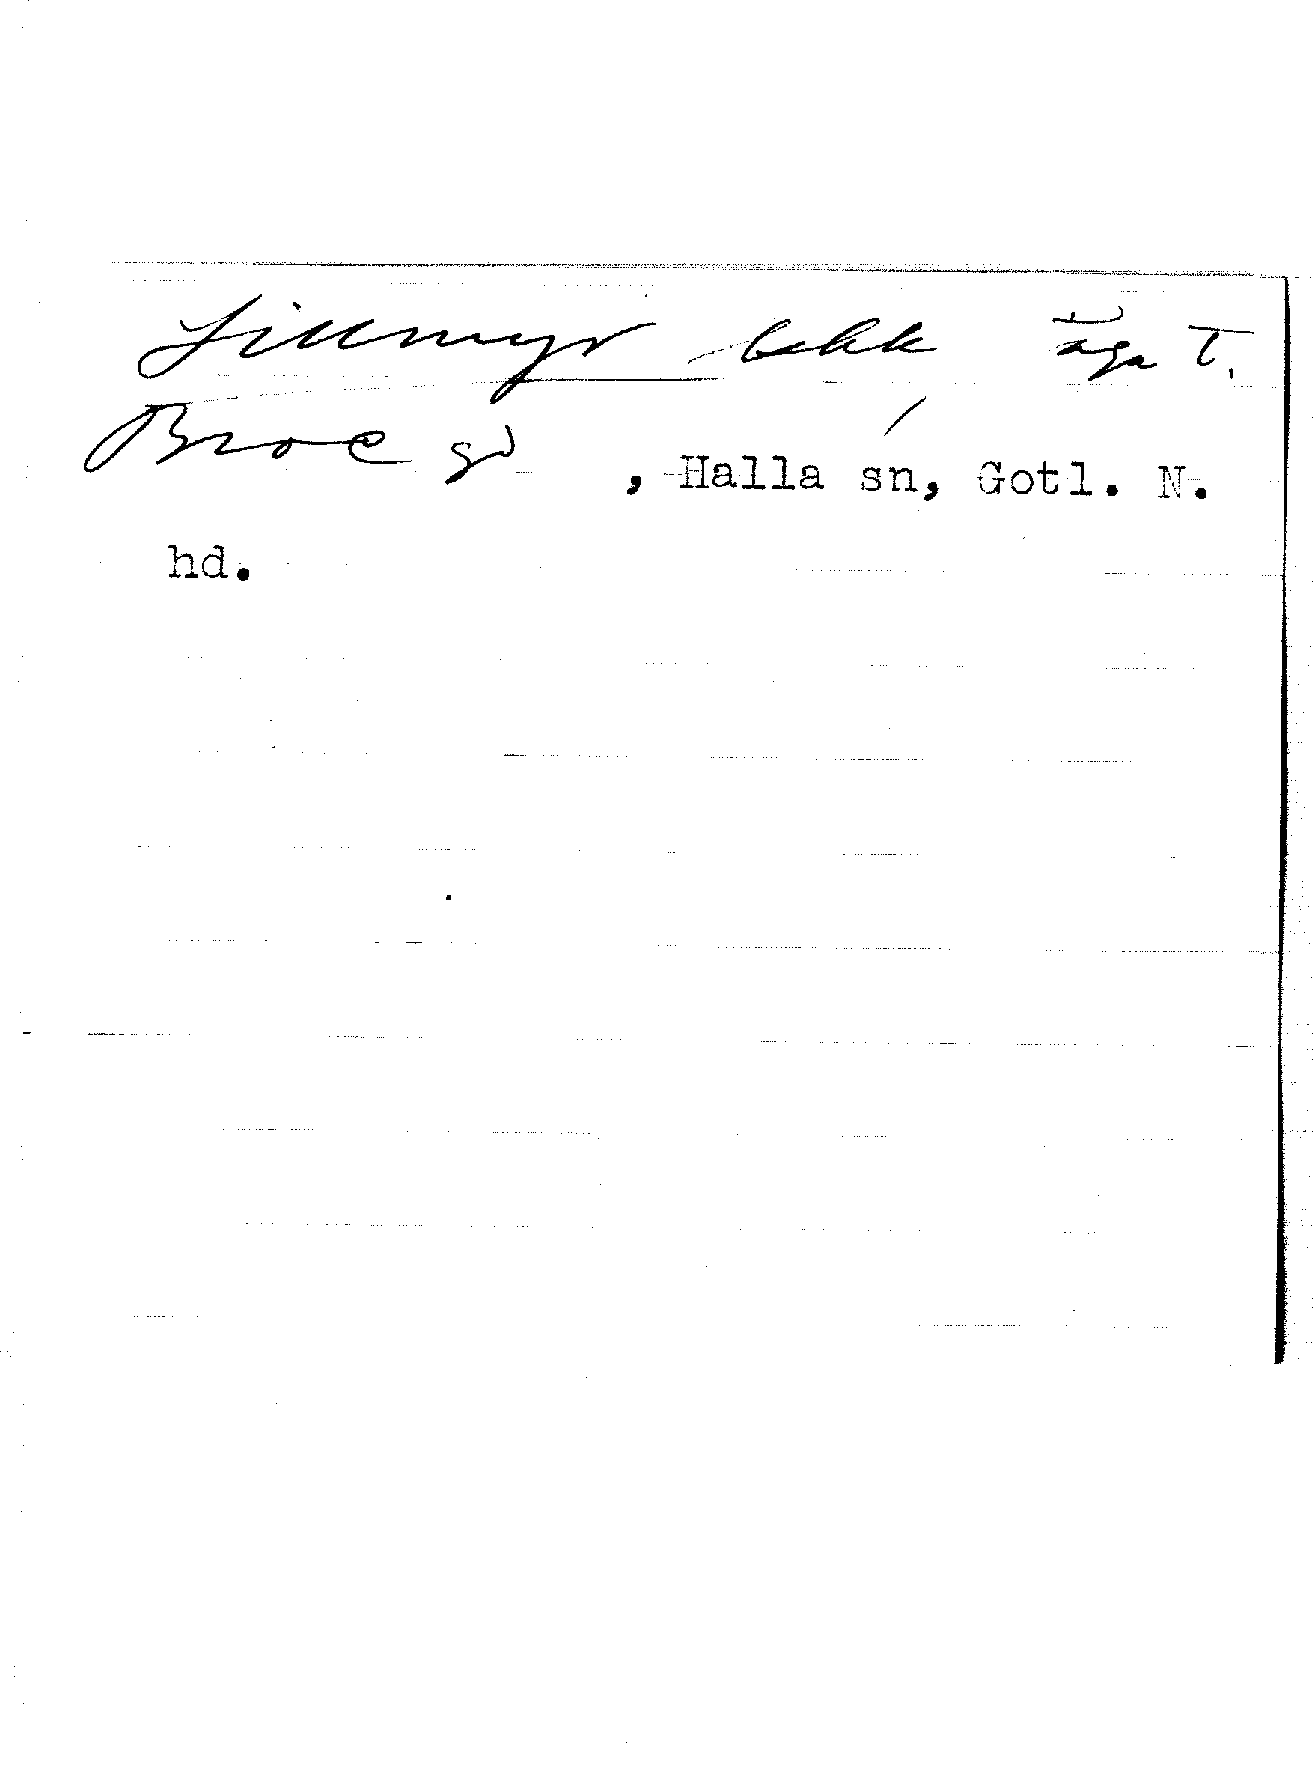 Lillmyr äga T.
Broe gd, Halla sn, Gotl. N.
hd.